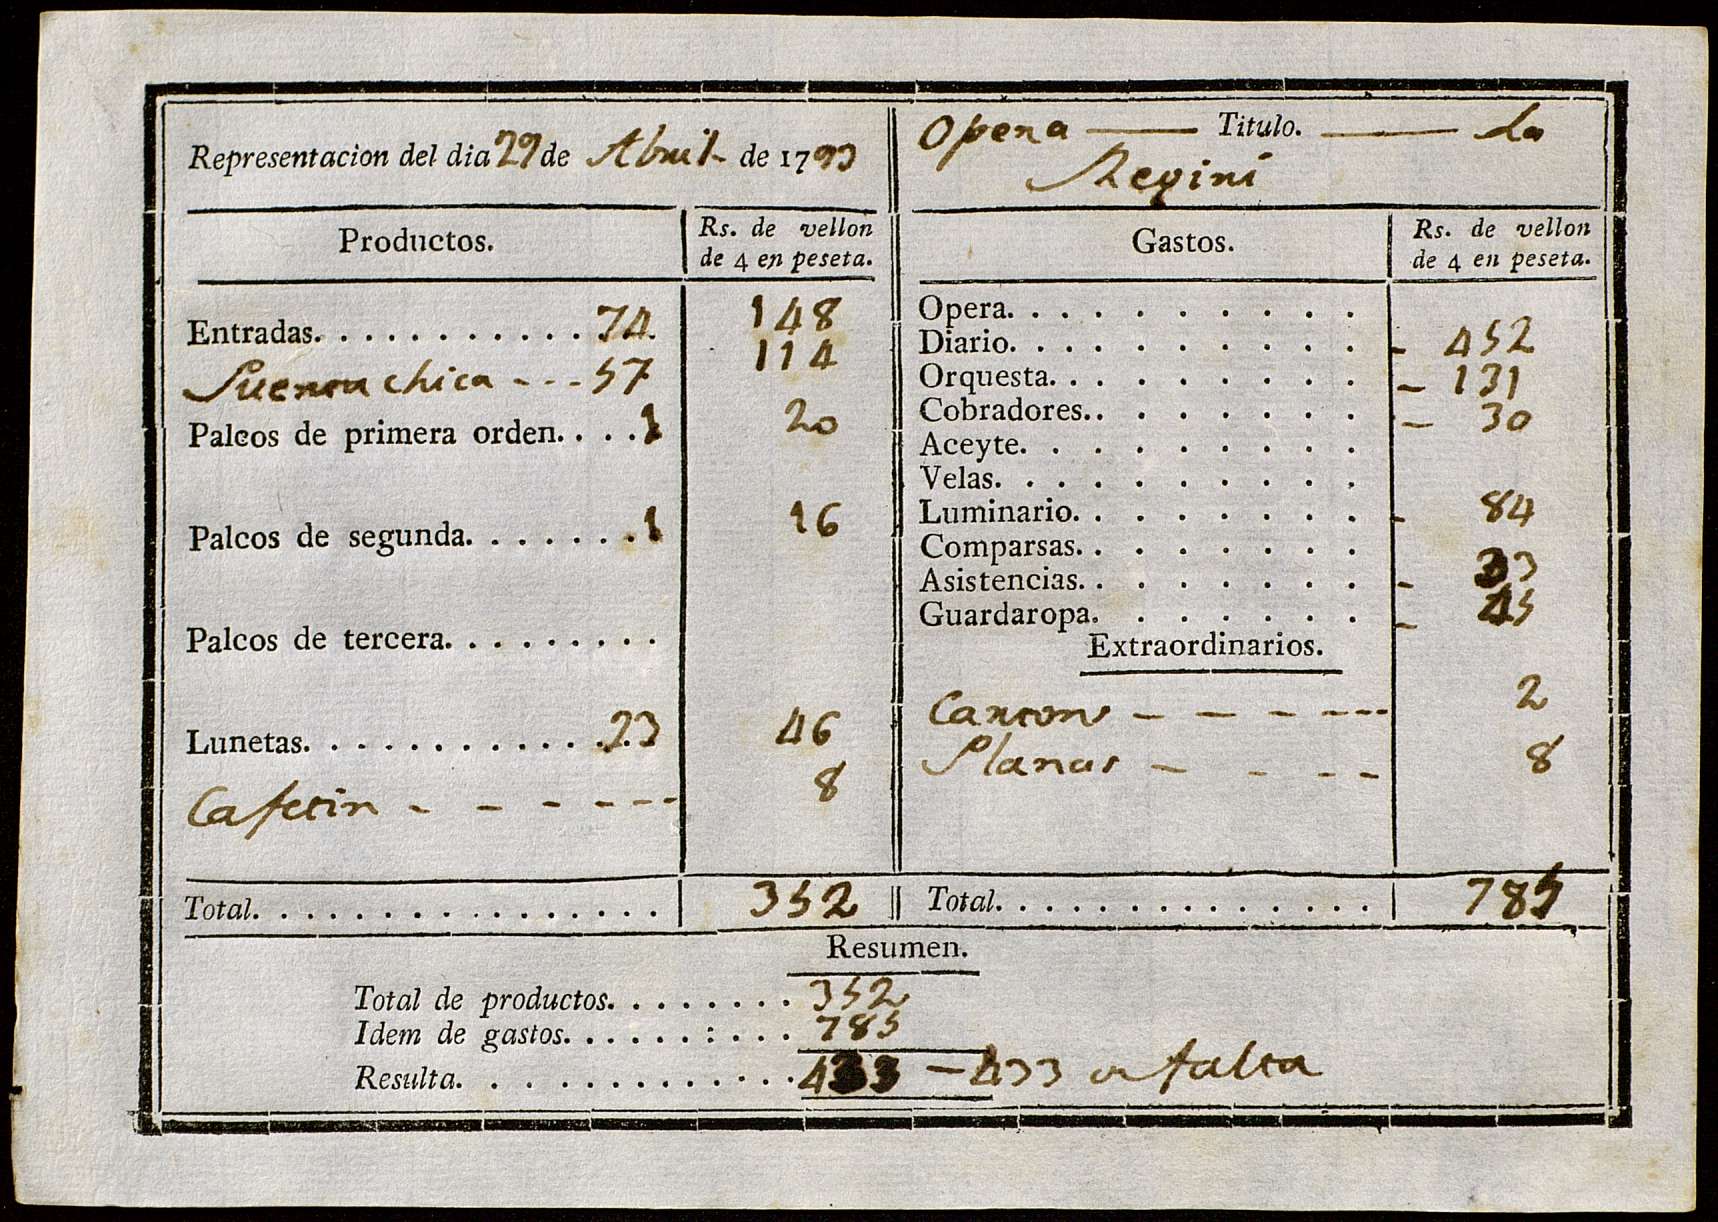 Representacion del dia 29 de Abril de 1793
Opera Titulo. La
Regini
Productos.
Rs. de vellon
de 4 en peseta.
Entradas. 74 148
Puerta chica 57 114
Palcos de primera orden. 1 20
Palcos de segunda. 1 16
Palcos de tercera.
Lunetas. 23 46
Cafetin 8
Total. 352
Gastos.
Rs. de vellon
de 4 en peseta.
Opera.
Diario. 452
Orquesta. 131
Cobradores. 30
Aceyte.
Velas.
Luminario. 84
Comparsas.
Asistencias. 33
Guardaropa. 45
Extraordinarios.
2
Planas 8
Total. 785
Resumen.
Total de productos. 352
Idem de gastos. 785
Resulta. 433 — 433 falta